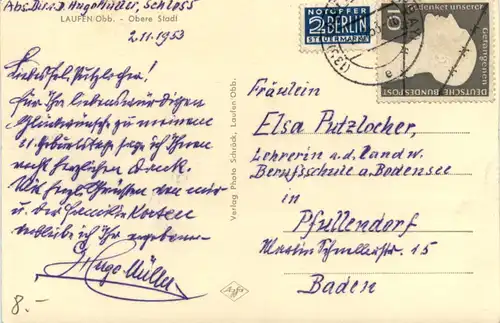 Abs. Dir. i. R. Hugo Müller, Schloss
LAUFEN Obb. - Obere Stadt
2.11.1953
Liebes Frl. Putzlocher!
Für Ihre liebenswürdigen
Glückwünsche zu meinem
Geburtstage sage ich Ihnen
recht herzlichen Dank.
Mit herzl. Grüßen von mir
u. der Familie
verbleibe ich Ihr ergebener
Hugo Müller
8.-
Verlag Photo Schröck, Laufen Obb.
Agfa
NOTOPFER
2 BERLIN
STEUERMARKE
Gedenket unserer
Gefangenen
DEUTSCHE BUNDESPOST
Fräulein
Elsa Putzlocher,
Lehrerin a. d. Landw.
Berufsschule a. Bodensee
in
Pfullendorf
Martin Schnellerstr. 15
Baden